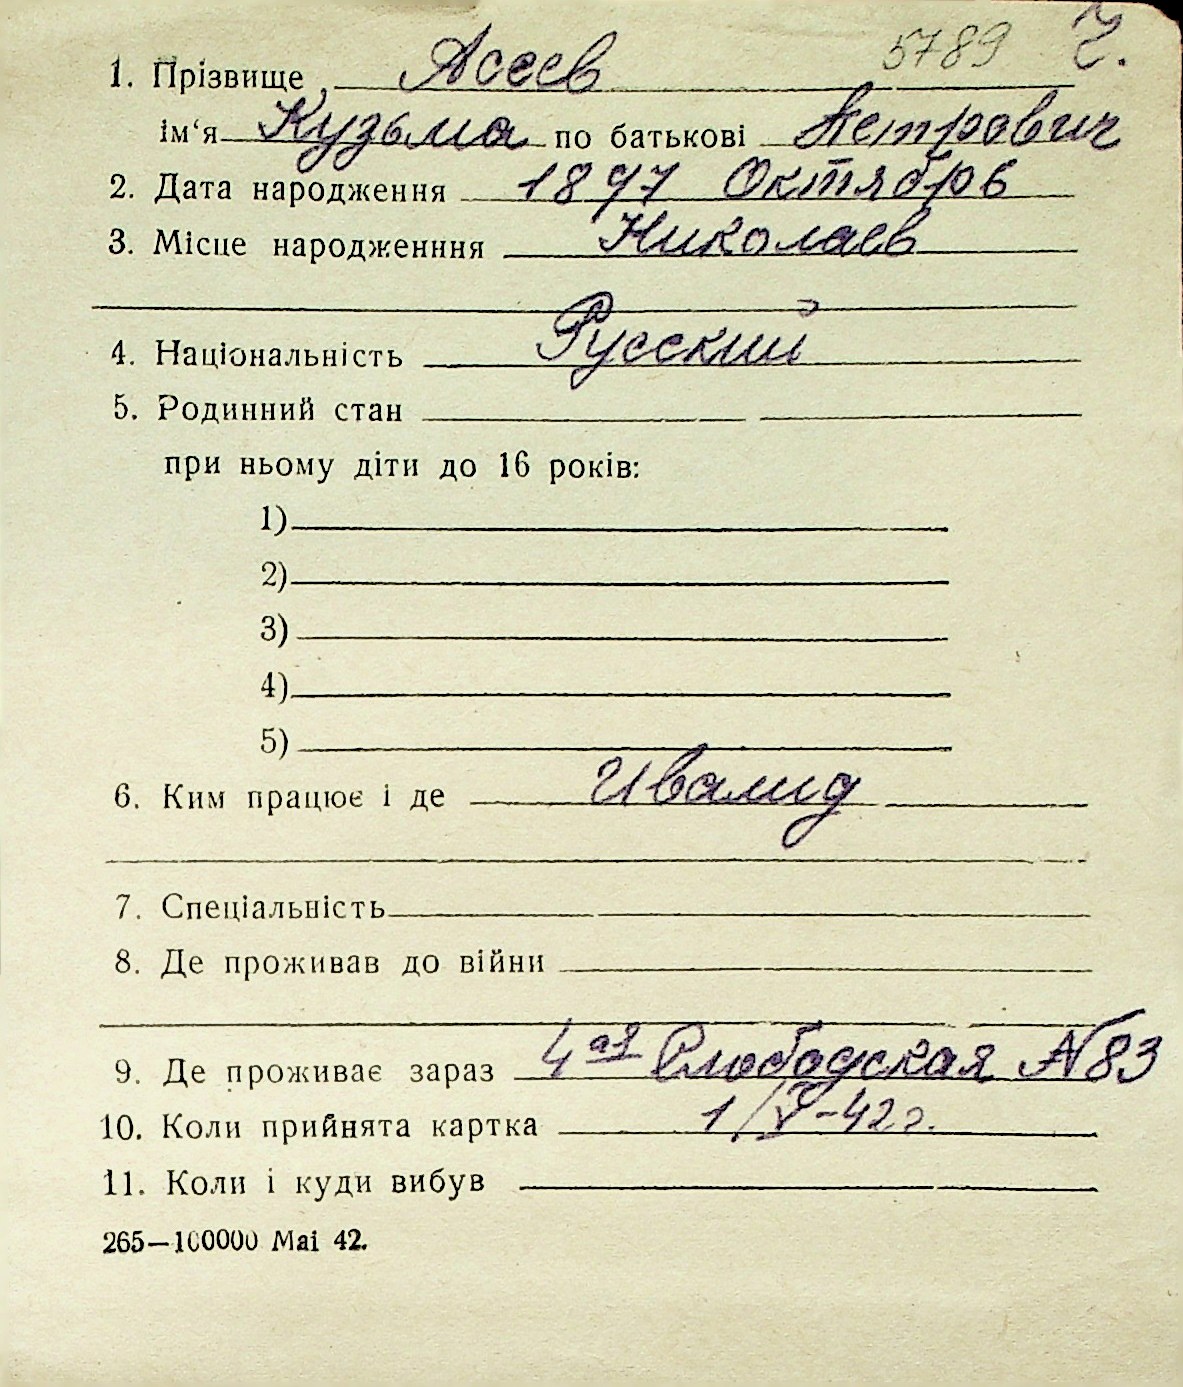 5789 Ч.
1. Прізвище, Асеев
ім‘я Кузьма по батькові Петрович
2. Дата народження 1897 Октябрь
3. Місце народженння Николаев
4. Національність Русский
5. Родинний стан
при ньому діти до 16 років:
1)
2)
3)
4)
5)
6. Ким працює і де Ивалид
7. Спеціальність
8. Де проживав до війни
9. Де проживає зараз 4ая Слободская №83
10. Коли прийнята картка 1/V-42 г.
11. Коли і куди вибув
265—100000 Mai 42.